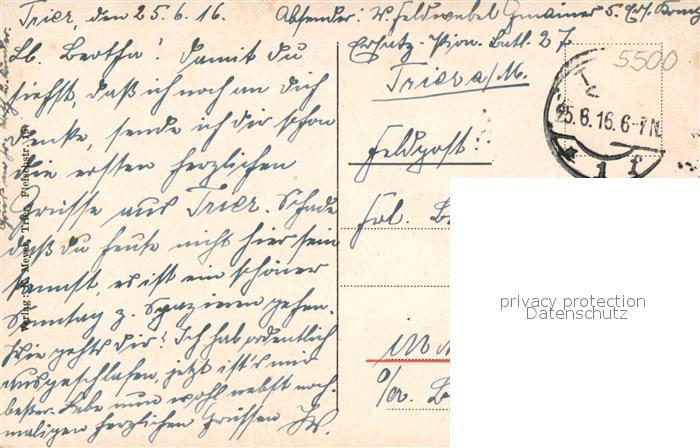 Trier, den 25.6.16.
Lb. Bertha! Damit du
siehst, daß ich noch an dich
denke, sende ich dir schon
die ersten herzlichen
Grüsse aus Trier. Schade
daß du heute nicht hier sein
kannst, es ist ein schöner
Sonntag z. Spazieren gehen.
Wie geht's dir? Ich hab ordentlich
ausgeschlafen, jetzt ist's mir
besser. Lebe nun wohl nebst noch-
maligen herzlichen Grüssen
Verlag: Meyer, Trier, Fleischstr.
Absender: V. Feldwebel 5. Ers. Komp.
Ersatz-Pion.-Batl. 27
Trier a/M.
5500
25.6.16.6-7N.
Feldpost!
Frl. B
in
O/A. B
privacy protection
Datenschutz